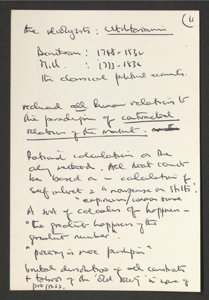 the ideologists : Utilitarianism
Bentham : 1748 - 1832
Mill : 1773 - 1836
the classical political economists.
reduced all human relations to
the paradigm of contractual
relations of the market.
Rational calculation as the
only method. All social conduct
be based on a calculation of
self interest = "nonsense on stilts"
empiricism/common sense
A sort of calculus of happiness -
"the greatest happiness of the
greatest number"
"poetry is mere pushpin"
brutal dissolution of all contracts
& tokens of the 'Old Society' in name of
progress.